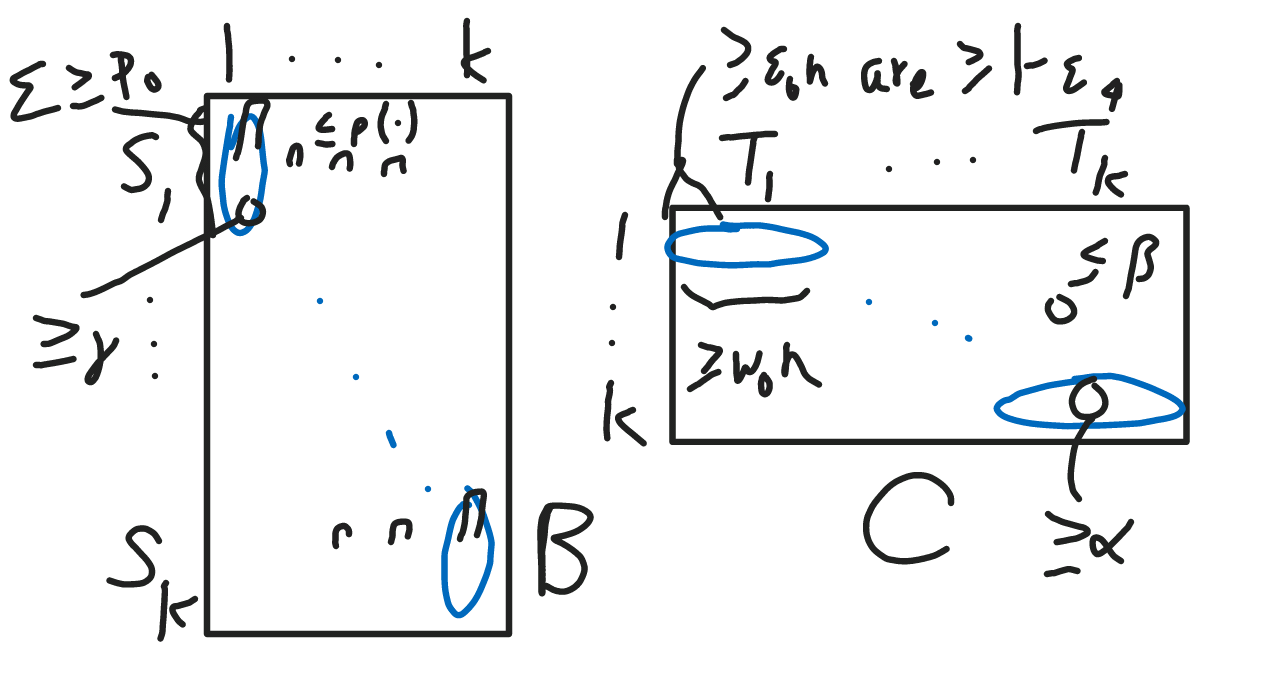 1 . . . k
Σ ≥ p₀
≤ p(·)
S₁
≥ γ
S_k
B
≥ ε₀n are ≥ 1 - ε₄
T₁ . . . T_k
1
≤ β
≥ w₀n
k
C
≥ α